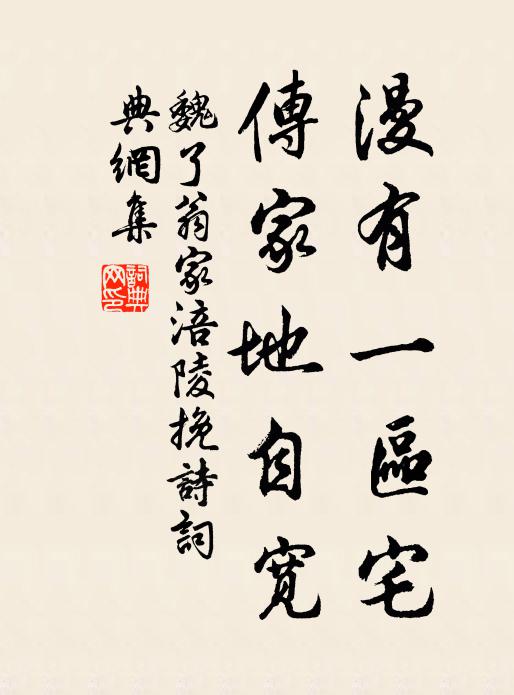 漫有一區宅
傳家地自寬
魏了翁家涪陵挽詩詞
典網集
詞典網印